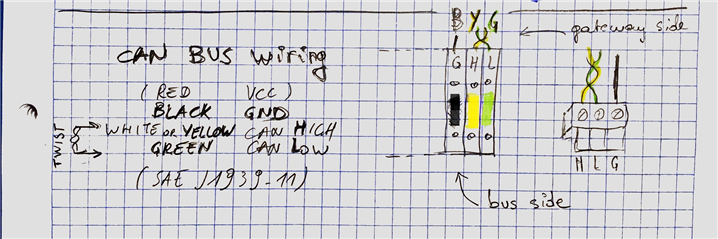 B Y G
gateway side
CAN BUS wiring
G H L
(RED VCC)
BLACK GND
TWIST
WHITE or YELLOW CAN HIGH
GREEN CAN LOW
H L G
(SAE J1939-11)
bus side